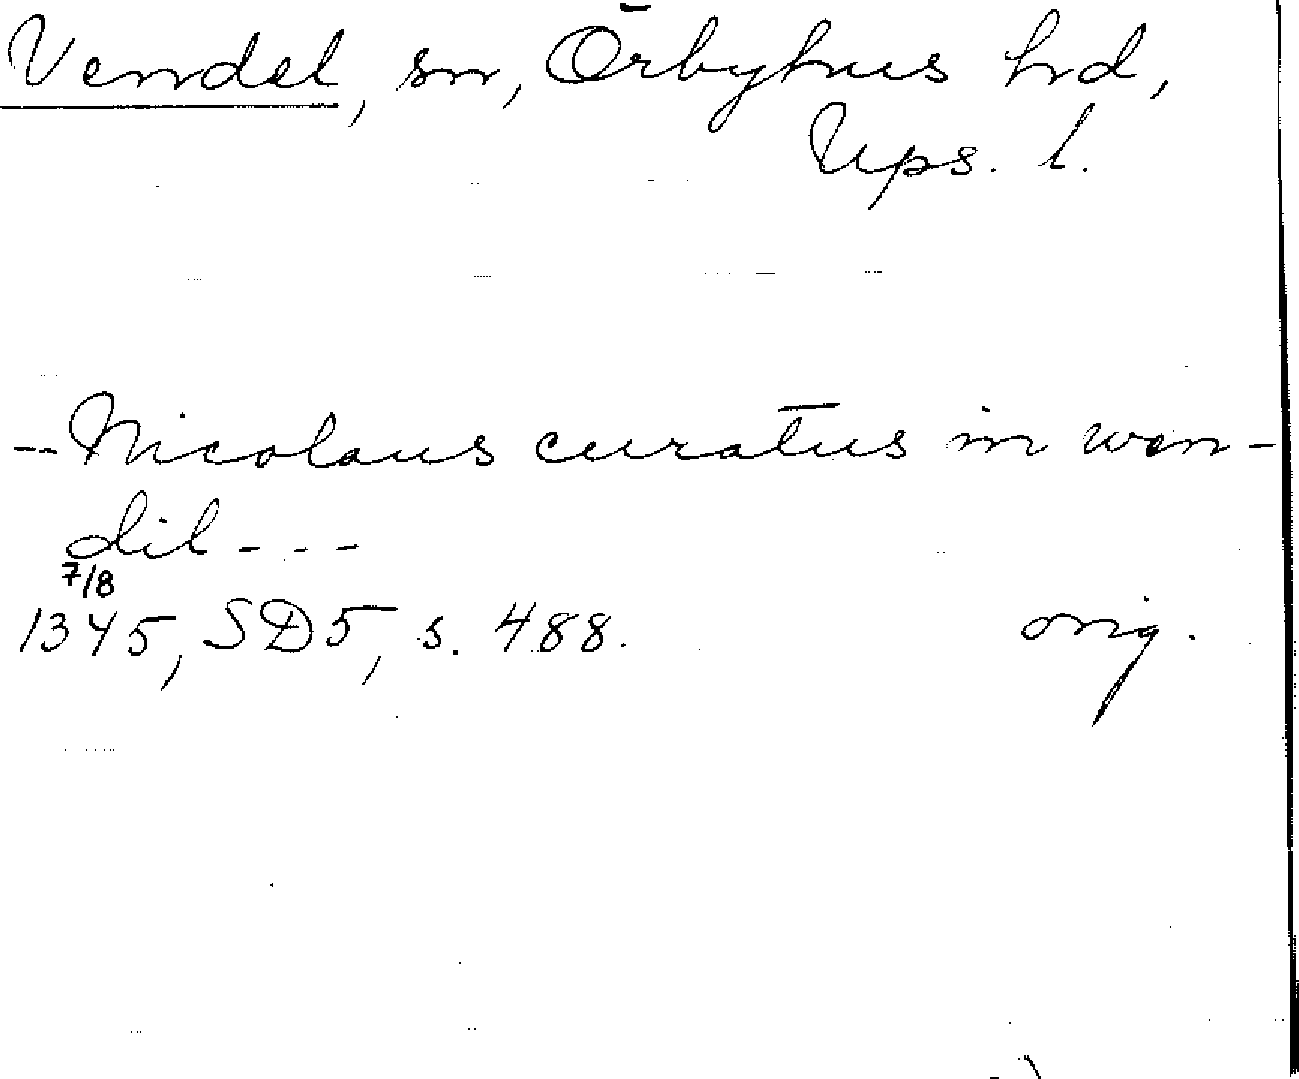 Vendel, sn, Örbyhus hrd,
Ups. l.
-- Nicolaus curatus in wen-
dil - - -
7/8
1345, SD5, s. 488. orig.